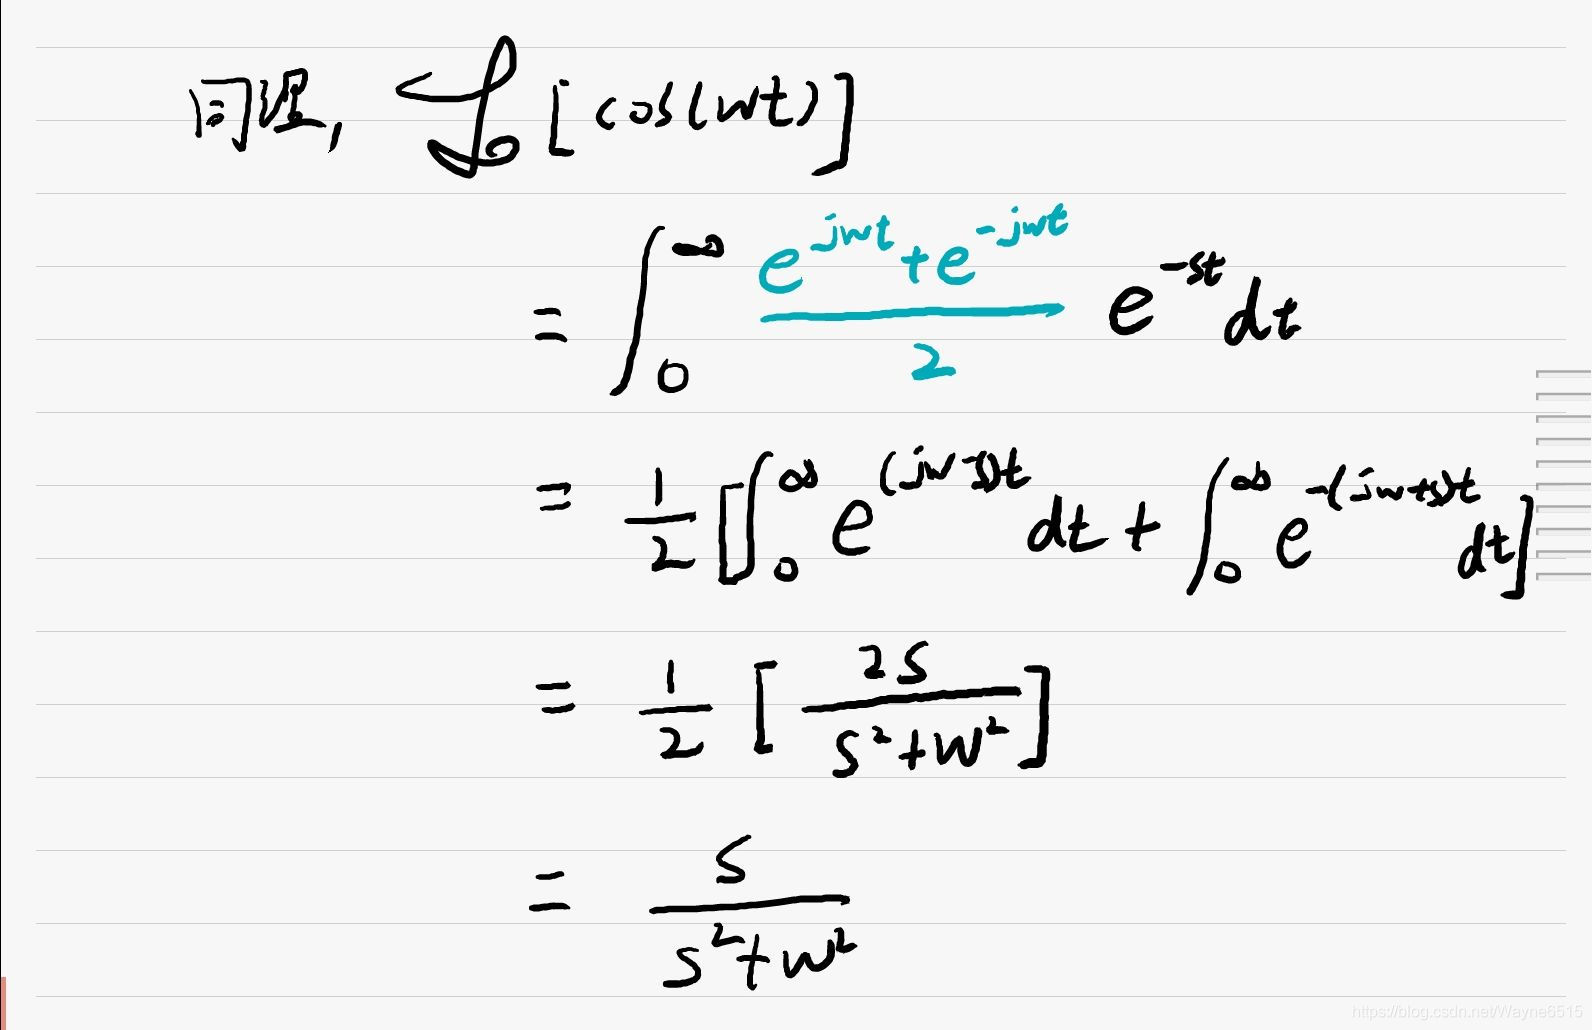 同理, ℒ[cos(wt)]
= ∫₀^∞ (e^{jwt}+e^{-jwt})/2 e^{-st} dt
= 1/2 [∫₀^∞ e^{(jw-s)t} dt + ∫₀^∞ e^{-(jw+s)t} dt]
= 1/2 [2s/(s²+w²)]
= s/(s²+w²)
https://blog.csdn.net/Wayne6515